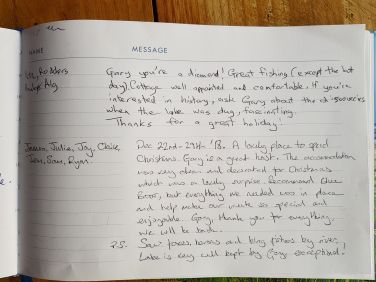 NAME MESSAGE
Gary you're a diamond! Great fishing (except the hot
day). Cottage well appointed and comfortable. If you're
interested in history, ask Gary about the discoveries
when the lake was dug, fascinating.
Thanks for a great holiday!
James, Julia, Joy, Claire,
Sam, Ryan.
Dec 22nd - 29th '18. A lovely place to spend
Christmas. Gary is a great host. The accomodation
was very clean and decorated for Christmas
which was a lovely surprise. Recommend
but everything we needed was in place
and help make our visit so special and
enjoyable. Gary, thank you for everything.
We will be back.
P.S. Saw foxes, herons and king fishers by river,
Lake is very well kept by Gary, exceptional!